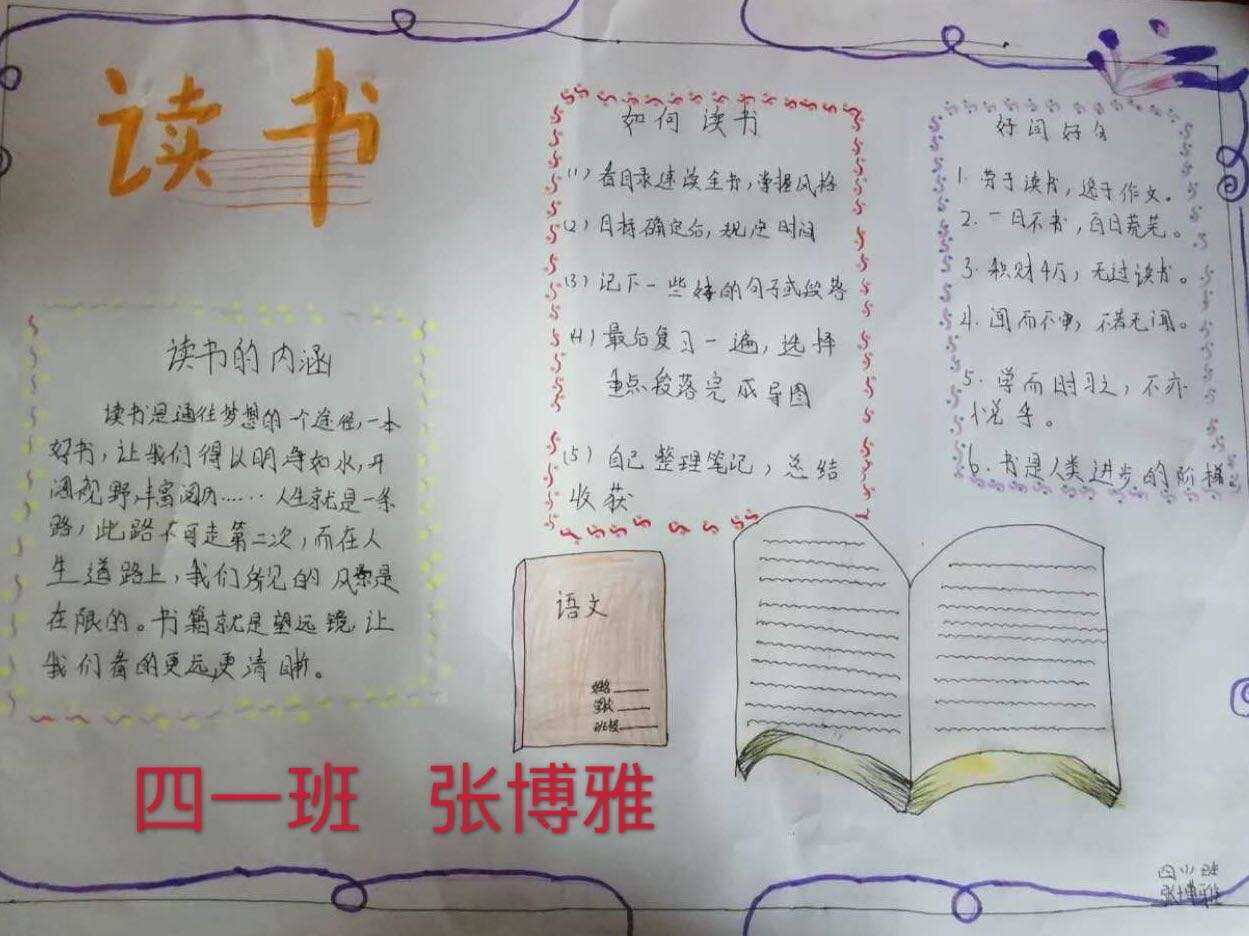 读书
读书的内涵
读书是通往梦想的一个途径,一本
好书,让我们得以明净如水,开
阔视野,丰富阅历……人生就是一条
路,此路不可走第二次,而在人
生道路上,我们所见的风景是
在限的。书籍就是望远镜,让
我们看的更远,更清晰。
如何读书
(1)看目录速读全书,掌握风格
(2)目标确定后,规定时间
(3)记下一些好的句子或段落
(4)最后复习一遍,选择
重点段落完成导图
(5)自己整理笔记,总结
收获
好词好句
1.劳于读书,逸于作文。
2.一日不书,百日荒芜。
3.积财千万,无过读书。
4.闻而不审,不若无闻。
5.学而时习之,不亦
悦乎。
6.书是人类进步的阶梯
语文
姓名
学校
班级
四一班 张博雅
四(1)班
张博雅